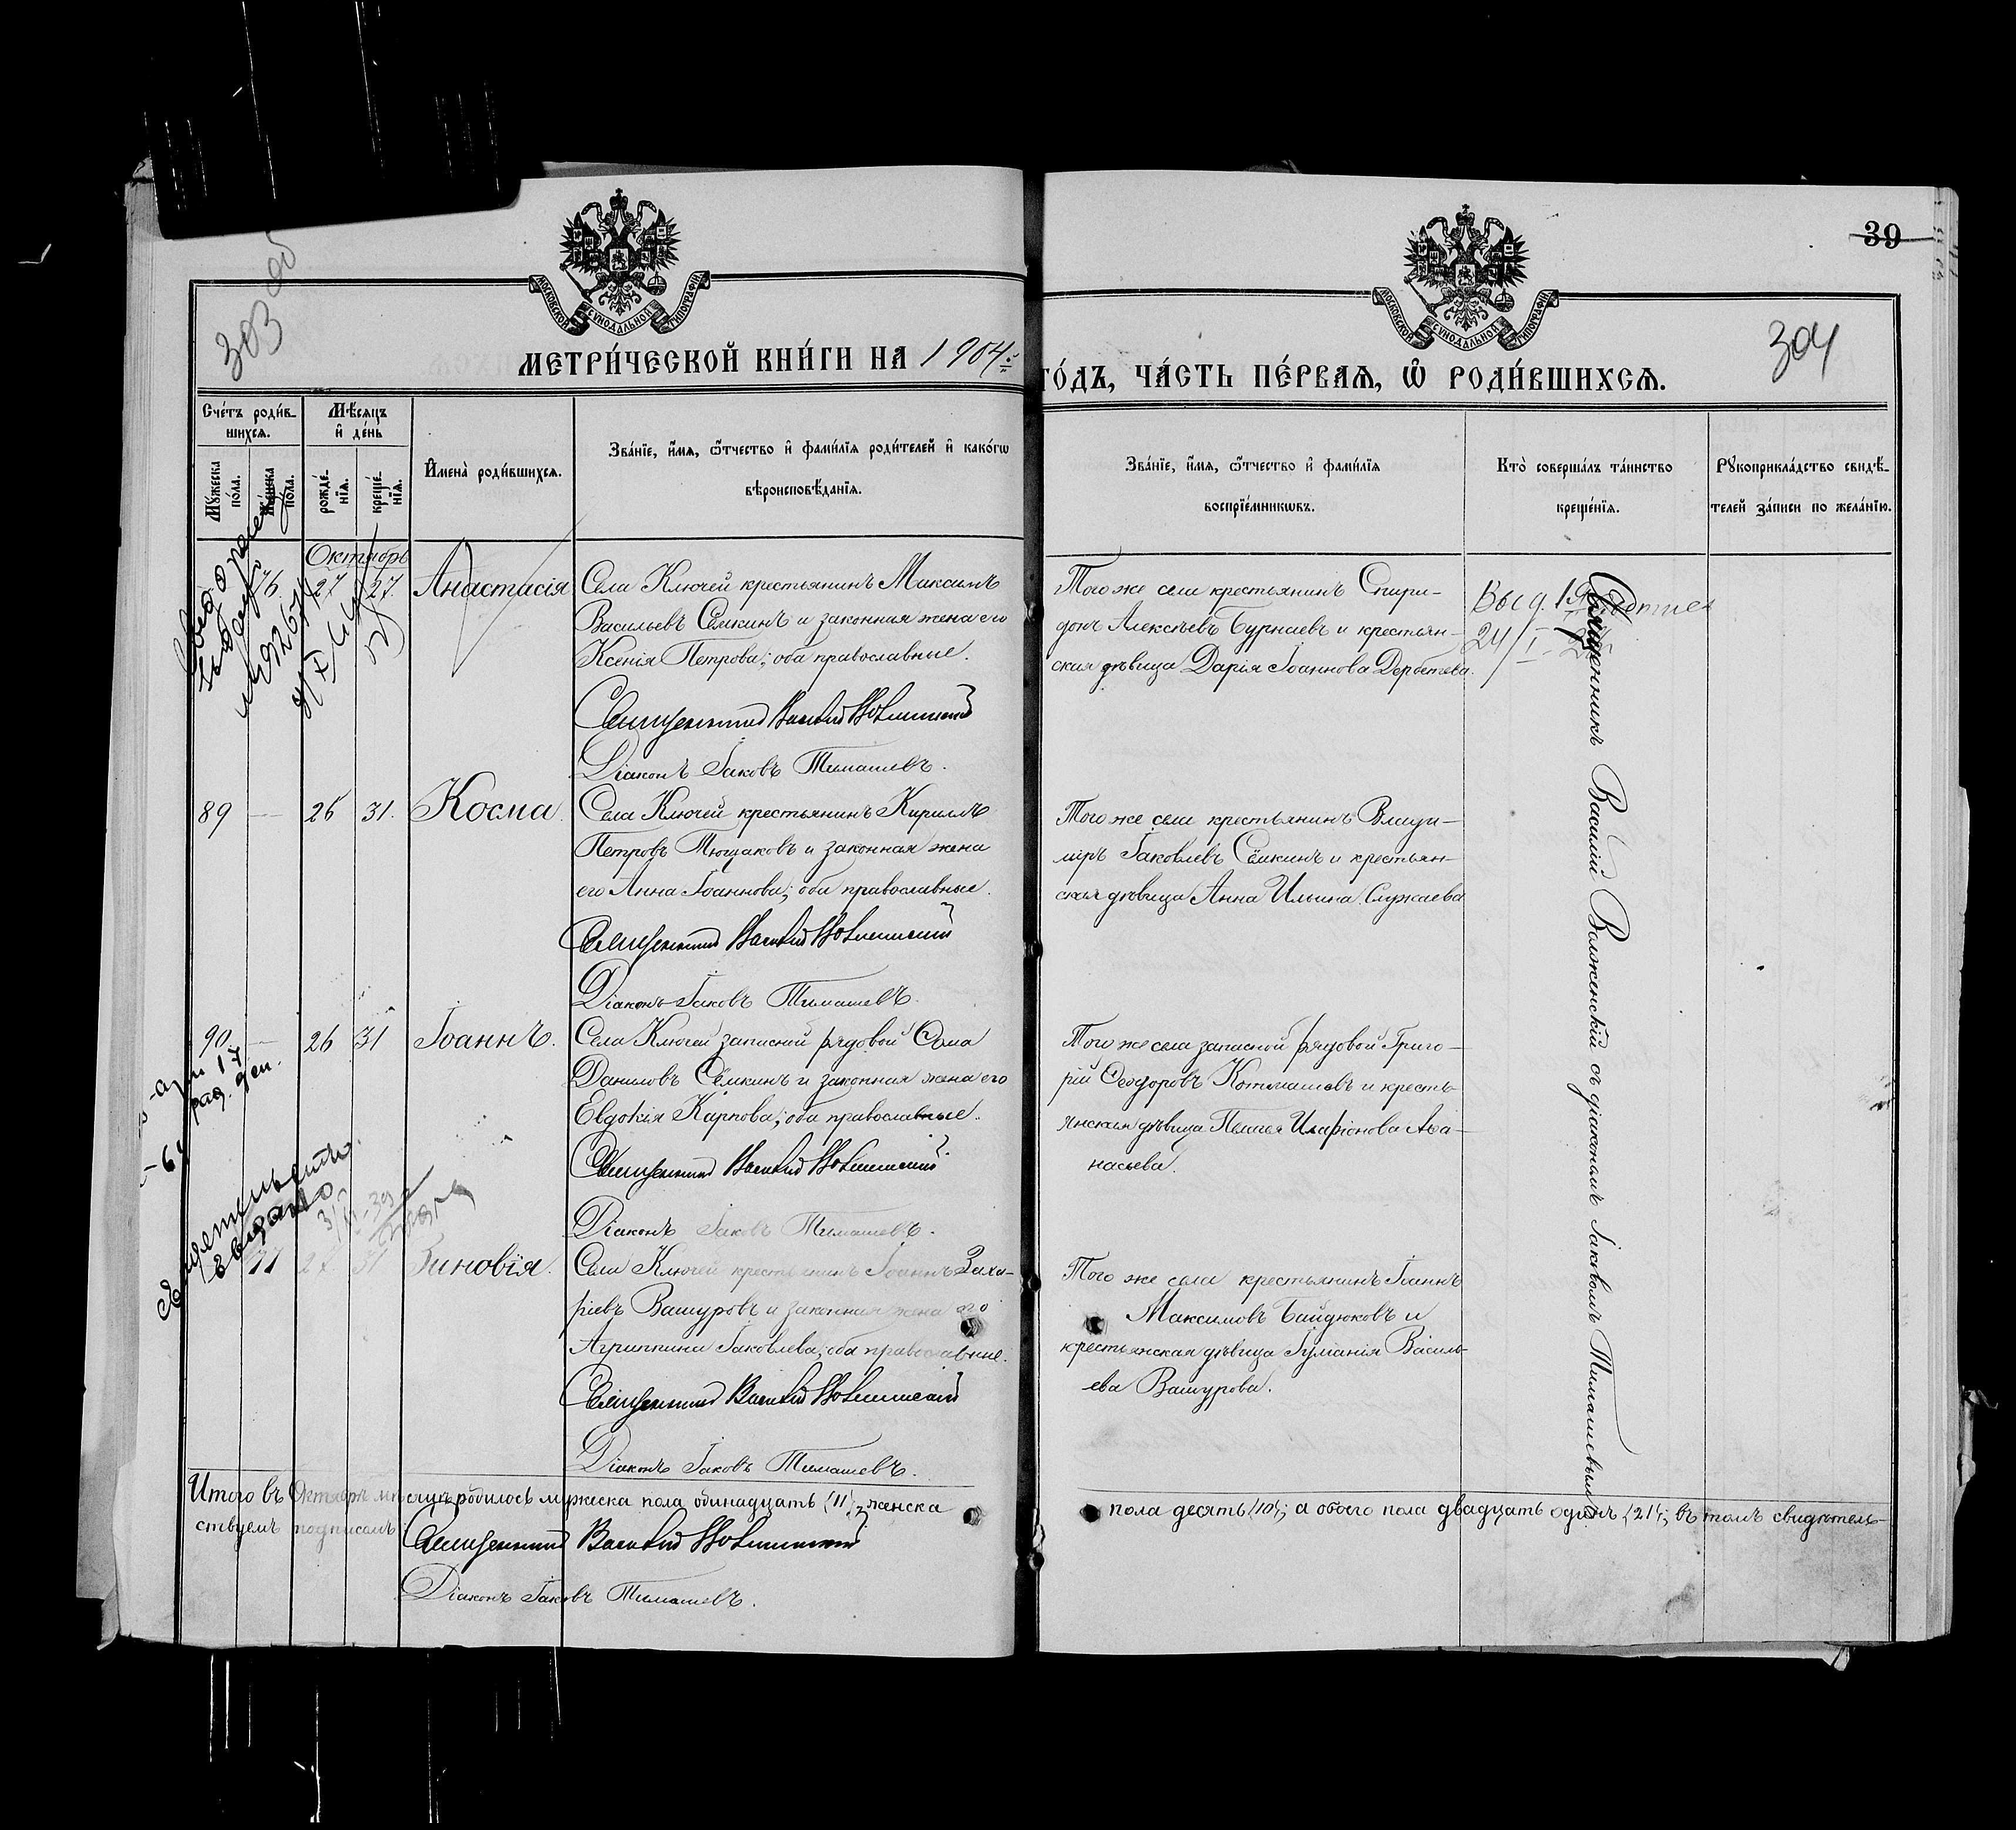 303 об
39
304
МОСКОВСКОЙ СУНОДАЛЬНОЙ ТИПОГРАФІИ
МОСКОВСКОЙ СУНОДАЛЬНОЙ ТИПОГРАФІИ
МЕТРИ́ЧЕСКОЙ КНИ́ГИ НА 1904й
ГО́ДЪ, ЧА́СТЬ ПЕ́РВАЯ, Ѽ РОДИ́ВШИХСЯ.
Сче́тъ роди́в-
шихся.
Мѣ́сяцъ
и҆ де́нь
Мꙋ́жеска
по́ла.
Же́нска
по́ла.
рожде́-
нїѧ.
креще́-
нїѧ.
И҆мена̀ роди́вшихсѧ.
Зва́нїе, и҆́мѧ, ѻ҆́тчество и҆ фами́лїѧ роди́телей и҆ како́гѡ
вѣроисповѣ́данїѧ.
Зва́нїе, и҆́мѧ, ѻ҆́тчество и҆ фами́лїѧ
воспрїе́мникѡвъ.
Кто̀ соверша́лъ та́инство
креще́нїѧ.
Рꙋкоприкла́дство свидѣ́-
телей за́писи по жела́нїю.
Октябрь
76. 27 27. Анастасія
Села Ключей крестьянинъ Максимъ
Васильевъ Сёмкинъ и законная жена его
Ксенія Петрова; оба православные.
Священникъ Василій Волженскій
Діаконъ Іаковъ Тимашевъ.
Того же села крестьянинъ Спири-
донъ Алексѣевъ Бурнаевъ и крестьян-
ская дѣвица Дарія Іоаннова Дербетева.
Выд.
24/I
89 — 26 31. Косма.
Села Ключей крестьянинъ Кириллъ
Петровъ Тюгаковъ и законная жена
его Анна Іоаннова; оба православные.
Священникъ Василій Волженскій
Діаконъ Іаковъ Тимашевъ.
Того же села крестьянинъ Влади-
міръ Іаковлевъ Сёмкинъ и крестьян-
ская дѣвица Анна Ильина Служаева
90. — 26 31 Іоаннъ.
Села Ключей записной рядовой Ѳома
Даниловъ Сёмкинъ и законная жена его
Евдокія Карпова; оба православные.
Священникъ Василій Волженскій
Діаконъ Іаковъ Тимашевъ.
Того же села записной рядовой Григо-
рій Ѳеодоровъ Котмашовъ и кресть-
янская дѣвица Пелагія Иларіонова Аѳа-
насьева.
Свидетельство
Выдано
77 27 31 Зиновія.
Села Ключей крестьянинъ Іоаннъ Заха-
ріевъ Вашуровъ и законная жена его
Агриппина Іаковлева; оба православные.
Священникъ Василій Волженскій
Діаконъ Іаковъ Тимашевъ.
Того же села крестьянинъ Іоаннъ
Максимовъ Байдюковъ и
крестьянская дѣвица Іуліанія Василь-
ева Вашурова.
Священникъ Василій Волженскій съ діакономъ Іаковомъ Тимашевымъ
Итого въ Октябрѣ мѣсяцѣ родилось мужеска пола одинадцать (11), женска
пола десять (10); а обоего пола двадцать одинъ (21); въ томъ свидѣтель-
ствуемъ подписомъ:
Священникъ Василій Волженскій
Діаконъ Іаковъ Тимашевъ.